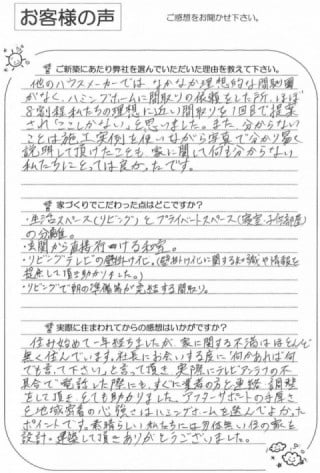 お客様の声
ご感想をお聞かせ下さい。
ご新築にあたり弊社を選んでいただいた理由を教えて下さい。
他のハウスメーカーでは、なかなか理想的な間取り図
がなく、ハミングホームに間取りの依頼をした所、ほぼ
8割程私たちの理想に近い間取りを1回目で提案
され「ここしかない」と思いました。また、分からない
ことは施工実例を使いながら写真で分かり易く
説明して頂けたことも、家に関して何も分からない
私たちにとっては良かったです。
家づくりでこだわった点はどこですか？
・生活スペース(リビング)とプライベートスペース(寝室・子供部屋)
の分離。
・玄関から直接行ける和室。
・リビングテレビの壁掛け化。(壁掛け化に関する知識や情報を
提供して頂き助かりました。)
・リビングで朝の準備等が完結する間取り。
実際に住まわれてからの感想はいかがですか？
住み始めて一年経ちましたが、家に関する不満はほとんど
無く住んでいます。社長にお会いする度に「何かあれば何
でも言って下さい。」と言って頂き、実際にテレビアンテナの不
具合で電話した際にも、すぐに業者の方と連絡、調整
をして頂き、とても助かりました。アフターサポートの手厚さ
と地域密着の心強さはハミングホームを選んでよかった
ポイントです。素晴らしい私たちには勿体無いほどの家を
設計・建築して頂きありがとうございました。